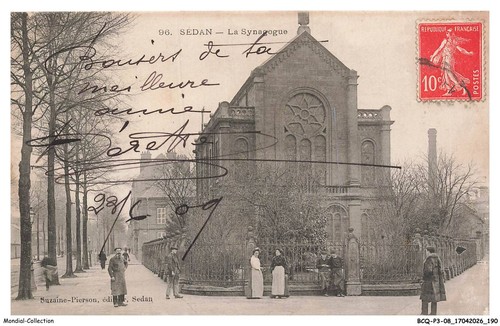 96. SEDAN – La Synagogue
Baisers de ta
meilleure
amie
23/6 09
RÉPUBLIQUE FRANÇAISE
10c
POSTES
Suzaine-Pierson, éditeur, Sedan
Mondial-Collection
BCQ-P3-08_17042026_190